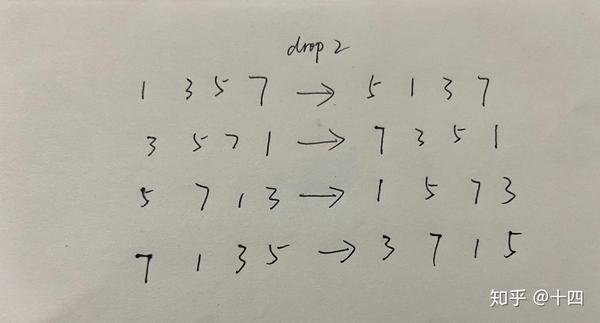 drop 2
1 3 5 7 → 5 1 3 7
3 5 7 1 → 7 3 5 1
5 7 1 3 → 1 5 7 3
7 1 3 5 → 3 7 1 5
知乎 @十四